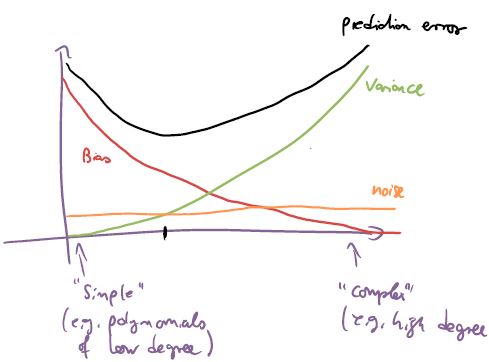 prediction error
Variance
Bias
noise
"Simple"
(e.g. polynomials
of low degree)
"complex"
(e.g. high degree